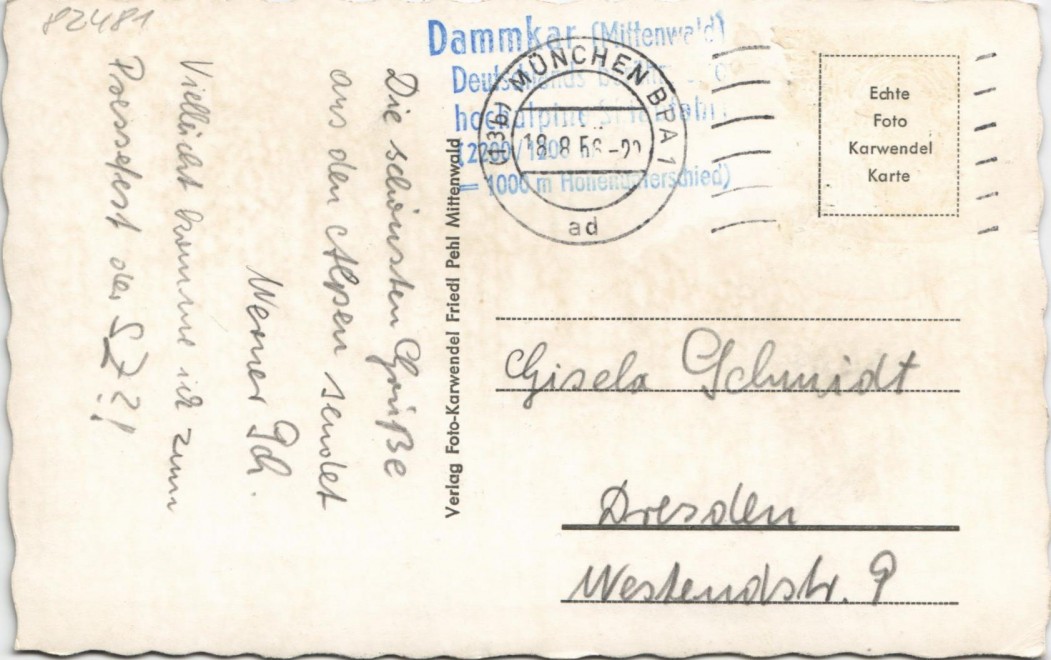 82481
Dammkar (Mittenwald)
Deutschlands
hochalpine
(2200/1200 m
= 1000 m Höhenunterschied)
(13b) MÜNCHEN BPA 1
18.8.56
ad
Echte
Foto
Karwendel
Karte
Die schönsten Grüße
aus den Alpen sendet
Werner Sch.
Villeicht komme ich zum
Pressefest der SZ?!
Verlag Foto-Karwendel Friedl Pehl Mittenwald
Gisela Schmidt
Dresden
Westendstr. 9